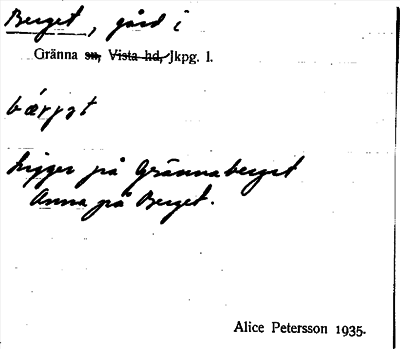 Berget, gård i
Gränna sn, Vista hd, Jkpg. l.
bárjət
Ligger på Grännaberget
Anna på Berget.
Alice Petersson 1935.